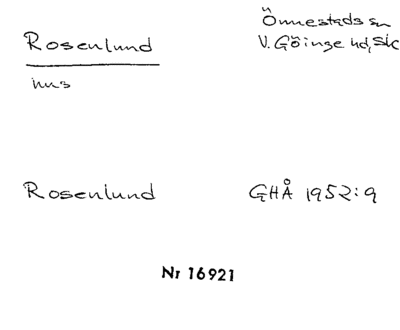 Rosenlund
hus
Önnestads sn
V. Göinge hd, Sk
Rosenlund
GHÅ 1952:9
Nr 16921